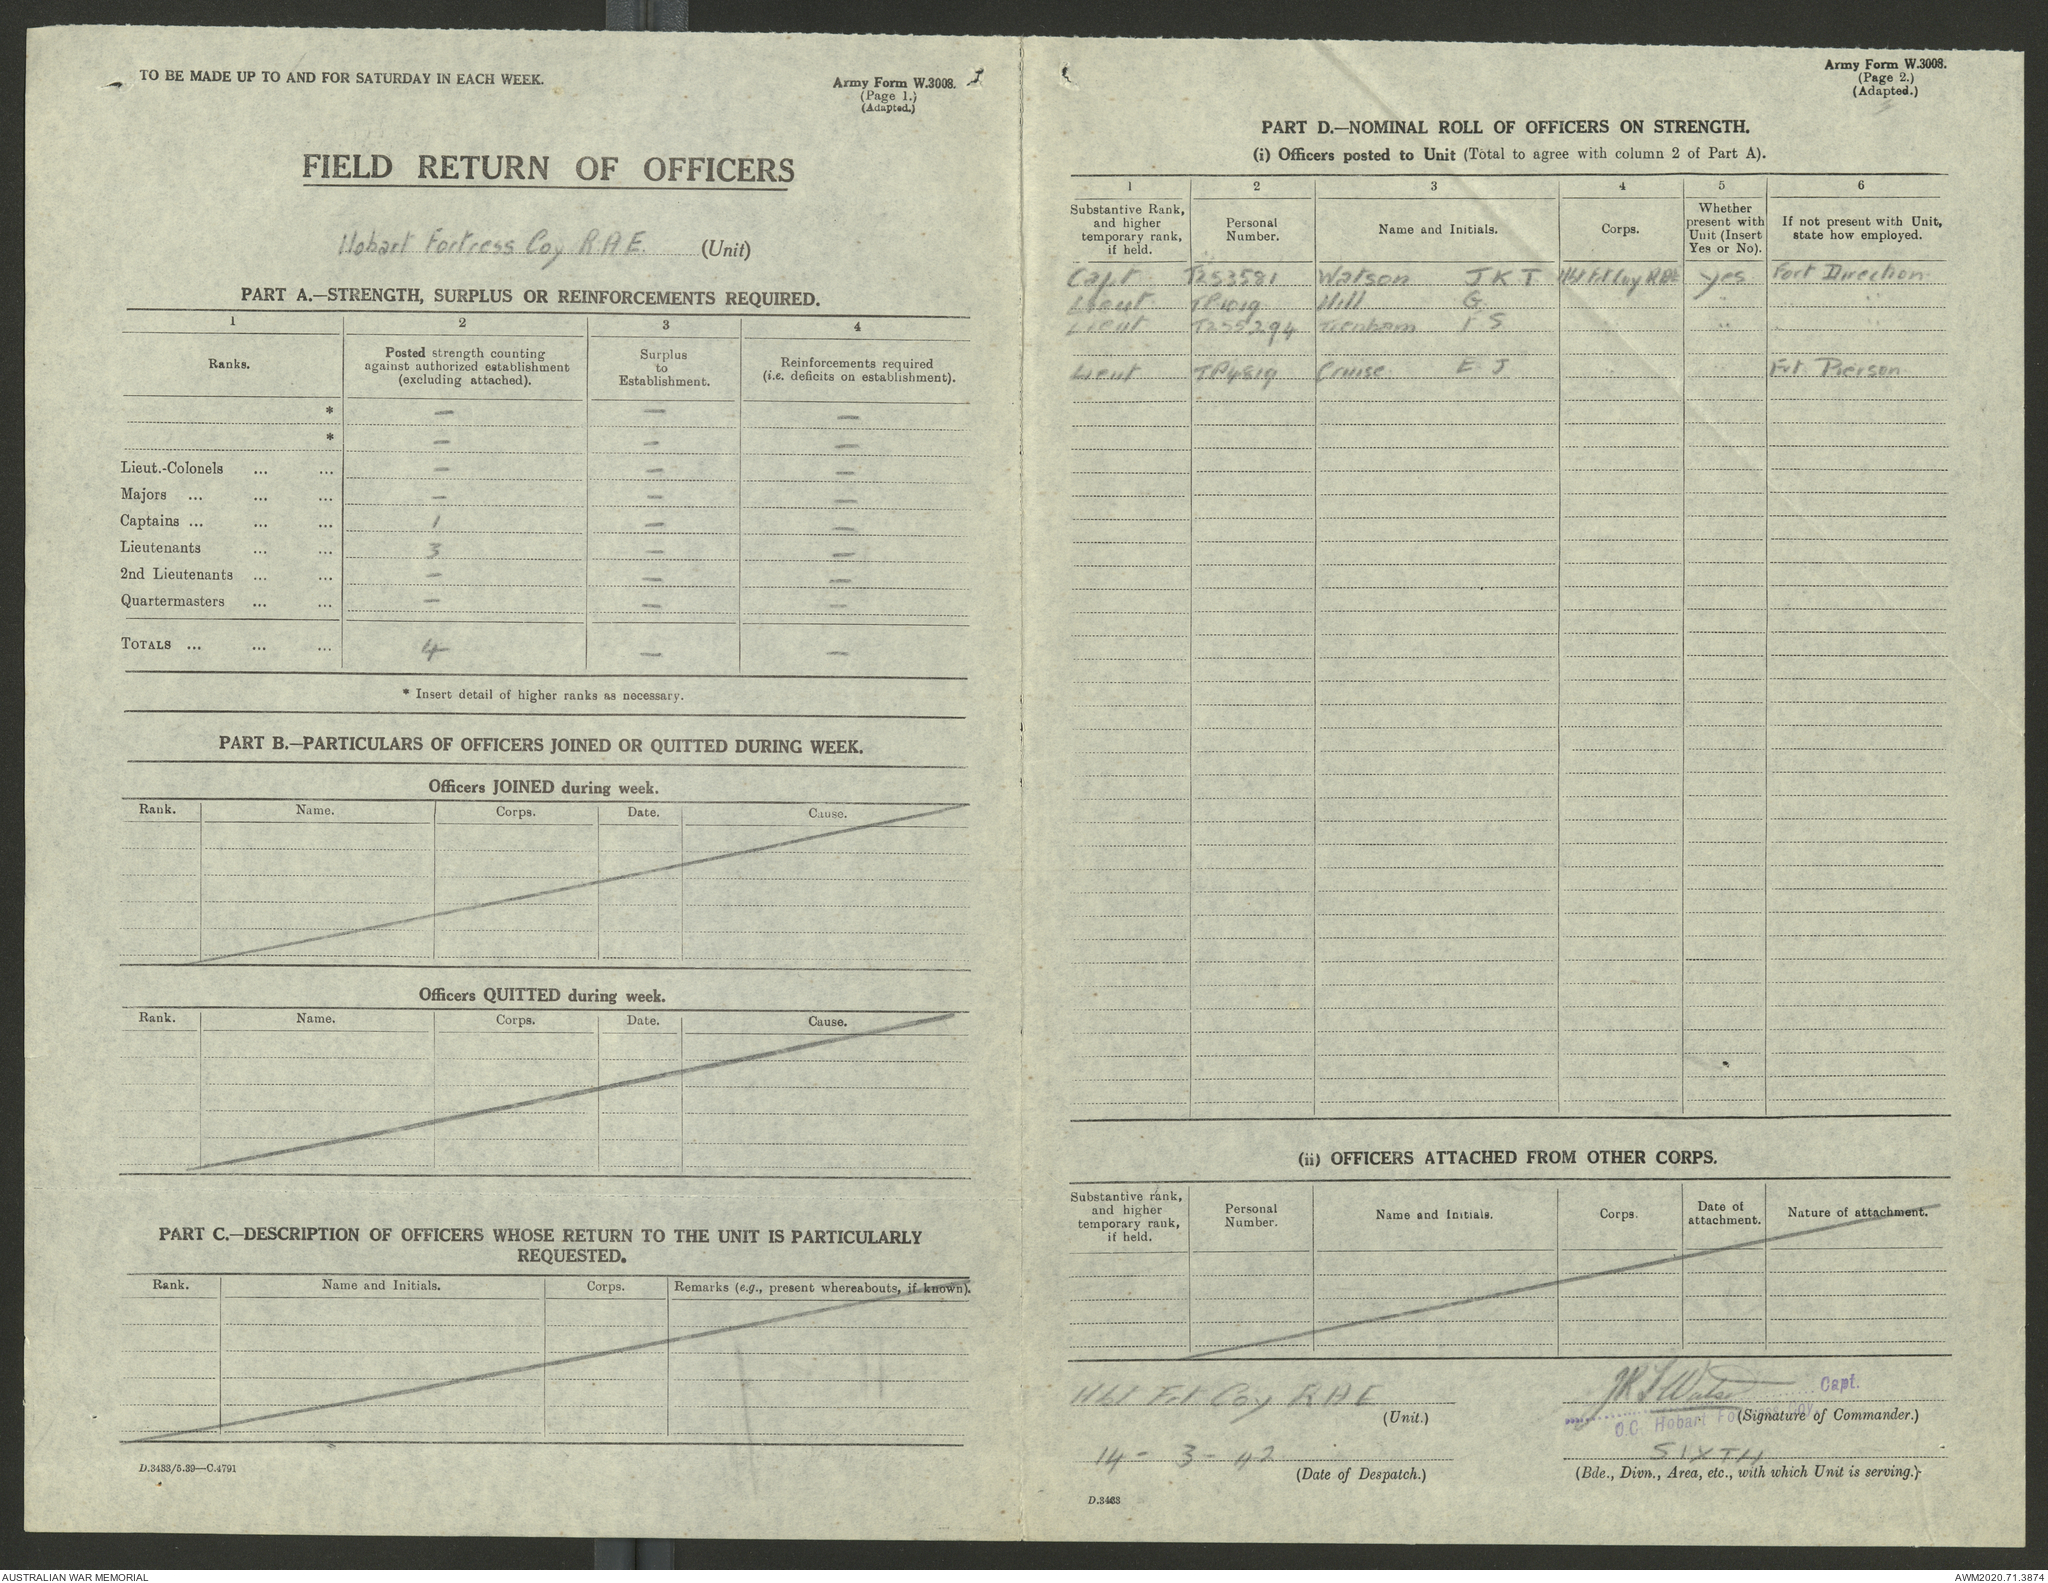 TO BE MADE UP TO AND FOR SATURDAY IN EACH WEEK.
Army Form W.3008.
(Page 1.)
(Adapted.)
FIELD RETURN OF OFFICERS
Hobart Fortress Coy R.A.E. (Unit)
PART A.—STRENGTH, SURPLUS OR REINFORCEMENTS REQUIRED.
1 2 3 4
Ranks. Posted strength counting against authorized establishment (excluding attached). Surplus to Establishment. Reinforcements required (i.e. deficits on establishment).
* — — —
* — — —
Lieut.-Colonels ... ... — — —
Majors ... ... ... — — —
Captains ... ... ... 1 — —
Lieutenants ... ... 3 — —
2nd Lieutenants ... ... — — —
Quartermasters ... ... — — —
TOTALS ... ... ... 4 — —
* Insert detail of higher ranks as necessary.
PART B.—PARTICULARS OF OFFICERS JOINED OR QUITTED DURING WEEK.
Officers JOINED during week.
Rank. Name. Corps. Date. Cause.
Officers QUITTED during week.
Rank. Name. Corps. Date. Cause.
PART C.—DESCRIPTION OF OFFICERS WHOSE RETURN TO THE UNIT IS PARTICULARLY
REQUESTED.
Rank. Name and Initials. Corps. Remarks (e.g., present whereabouts, if known).
D.3433/5.39—C.4791
Army Form W.3008.
(Page 2.)
(Adapted.)
PART D.—NOMINAL ROLL OF OFFICERS ON STRENGTH.
(i) Officers posted to Unit (Total to agree with column 2 of Part A).
1 2 3 4 5 6
Substantive Rank, and higher temporary rank, if held. Personal Number. Name and Initials. Corps. Whether present with Unit (Insert Yes or No). If not present with Unit, state how employed.
Capt T253581 Watson J K T Hbt Frt Coy RAE yes Fort Direction
Lieut Hill G. " "
Lieut T255294 Trenham " " "
Lieut TP4819 Cruise E J Frt Pierson
(ii) OFFICERS ATTACHED FROM OTHER CORPS.
Substantive rank, and higher temporary rank, if held. Personal Number. Name and Initials. Corps. Date of attachment. Nature of attachment.
Hbt Frt Coy R A E
(Unit.)
JKT Watson Capt.
O.C. Hobart Fortress Coy.
(Signature of Commander.)
14 - 3 - 42
(Date of Despatch.)
SIXTH
(Bde., Divn., Area, etc., with which Unit is serving.)
D.3433
AUSTRALIAN WAR MEMORIAL
AWM2020.71.3874